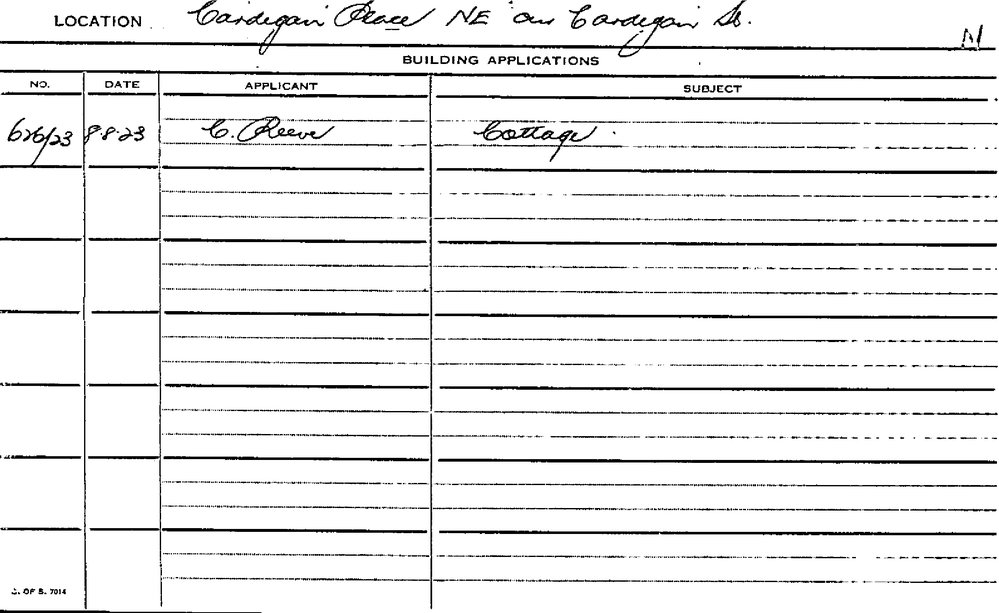 LOCATION Cardigan Place NE cnr Cardigan St. N
BUILDING APPLICATIONS
NO. DATE APPLICANT SUBJECT
626/23 8.8.23 C. Reeve Cottage
C. OF B. 7014